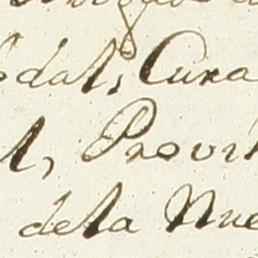 dal, Cura
l, Provi
dela Nue